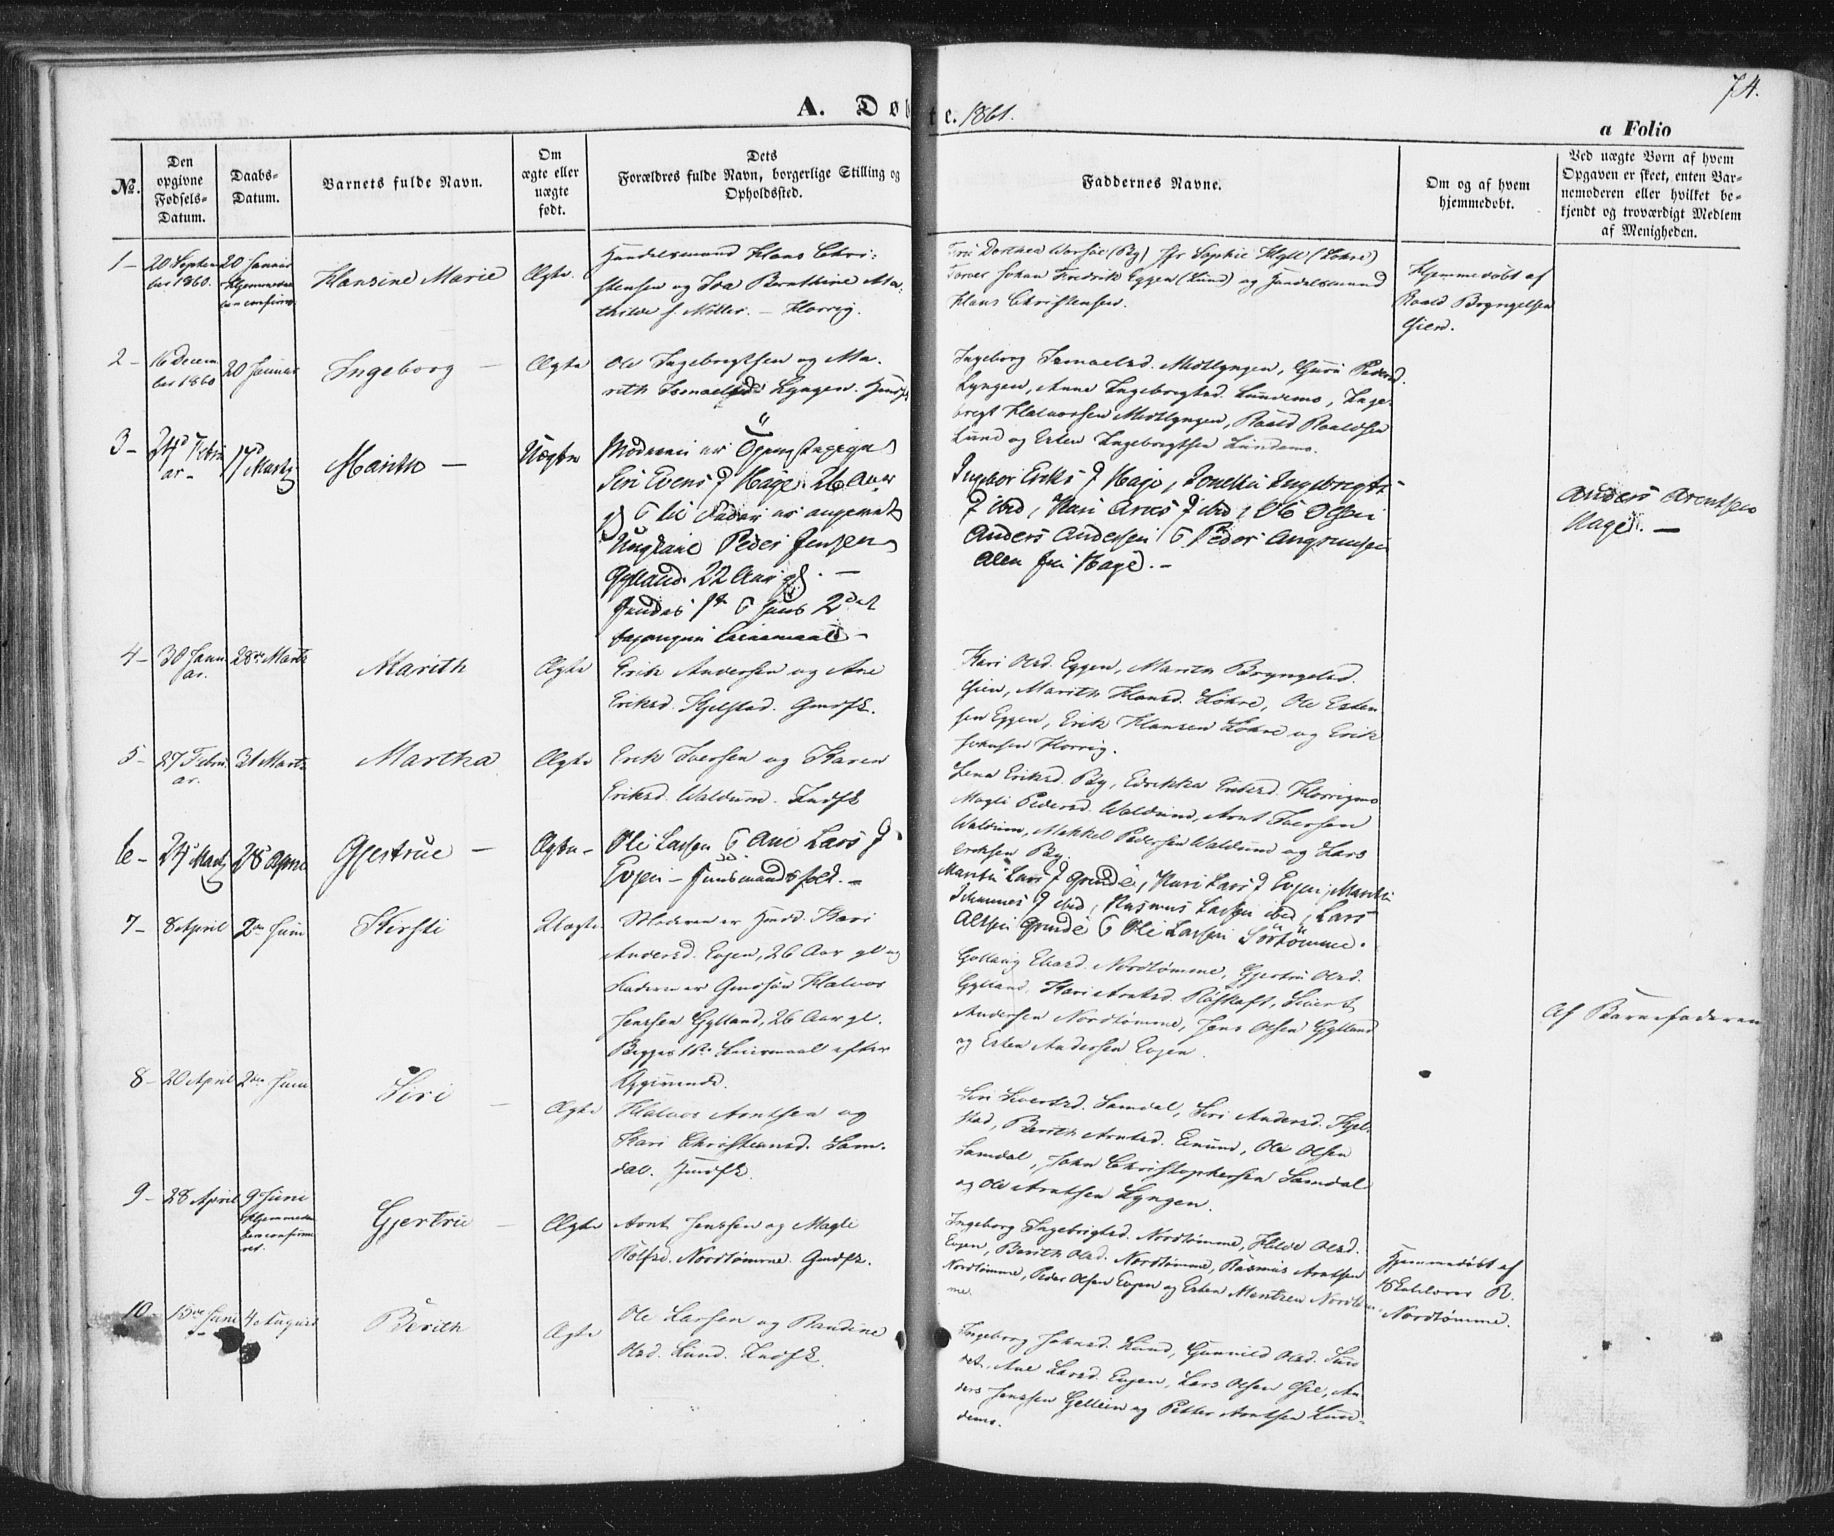 74.
A. Døbte. 1861.
a Folio
No.
Den opgivne Fødsels-Datum.
Daabs-Datum.
Barnets fulde Navn.
Om ægte eller uægte født.
Dets Forældres fulde Navn, borgerlige Stilling og Opholdssted.
Faddernes Navne.
Om og af hvem hjemmedøbt.
Ved uægte Børn af hvem Opgaven er skeet, enten Barnemoderen eller hvilket bekjendt og troværdigt Medlem af Menigheden.
1 - 20 Septem
ber 1860.
20 Januar
Hjemmedaa
ben confirm
Hansine Marie
Ægte
Handelsmand Hans Chri-
stensen og Ida Bernthine Ma-
thilde f. Möller. - Horrig.
Dorthea (By) Sophie (Løhre)
Johan Fredrik Eggen (Lund) og Handelsmand
Hans Christensen.
Hjemmedøbt af
Roald Bryngelsen
Gien.
2 - 16 Decem
ber 1860
20 Januar
Ingeborg -
Ægte
Ole Ingebrigtsen og Ma-
rith Ismaelsd. Lyngen.
Ingeborg Ismaelsd. Midtlyngen, Guru Pedersd.
Lyngen, Anne Ingebrigtsd. Lundemo, Inge-
brigt Halvorsen Midtlyngen, Roald Roaldsen
Lund og Esten Ingebrigtsen Lundemo.
3 - 24d Febru
ar -
17d Marts
Marith -
Uægte
Moderen er
Siri Evens D Hage 26 Aar
gl & Faderen er angivet
Ungkarl Peder Jensen
Gylland 22 Aar gl. -
Hendes 1ste & hans 2det
Leiermaal -
Ingebor Eriks D Hage, Ingebregts
D ibid, Kari D ibid, Ole Olsen
Anders Andersen & Peder
Alen fra Hage. -
Anders Arentsen
Hage. -
4 - 30 Janu
ar.
28de Marts
Marith
Ægte
Erik Andersen og Ane
Eriksd. Kjelstad. Gmdfk.
Kari Olsd. Eggen, Marith Bryngelsd.
Gien, Marith Hansd. Løhre, Ole Esten
sen Eggen, Erik Hansen Løhre og Erik
Johnsen Horrig.
5 - 27 Febru
ar.
31 Marts
Martha
Ægte
Erik Iversen og Karen
Eriksd. Waldum. Indfk
Lena Eriksd. By, Horrigmo
Magli Pedersd. Waldum, Arnt Iversen
Waldum, Mikkel Pedersen Waldum og Lars
Eriksen By.
6 - 24 Marts
28 April
Gjertrue -
Ægte -
Ole Larsen & Ane Lars D.
Evjen - Huusmandsfolk. -
Marith Lars D Grinde, Kari Lars D Evjen, Marith
Johannes D ibid, Rasmus Larsen ibid, Lars
Alfsen Grinde & Ole Larsen Sörtömme.
7 - 8 April
2den Juni
Kirsti
Uægte
Moderen er Kari
Andersd. Evjen, 26 Aar gl og
Faderen er Gmdsøn Halvor
Jenssen Gylland, 26 Aar gl.
Begges 1ste Leiermaal efter
Opgivende.
Gollaug Nordtømme, Gjertru Olsd.
Gylland, Kari Arntsd. Röskaft, Sivert
Andersen Nordtømme, Jens Olsen Gylland
og Esten Andersen Evjen.
Af Barnefaderen
8 - 20 April
2den Juni
Siri -
Ægte
Halvor Arntsen og
Kari Christiansd. Sam-
dal.
Siri Sivertsd. Samdal, Siri Andersd. Kjel-
stad, Berith Arntsd. Enund, Ole Olsen
Samdal, John Christophersen Samdal
og Ole Arntsen Lyngen.
9 - 28 April
9 Juni
Hjemmedaa
ben confirme
ret.
Gjertru -
Ægte
Arnt Jenssen og Magli
Rolfsd. Nordtømme. Gmdfk.
Ingeborg Ingebrigtsd. Nordtömme, Olsd.
Evjen, Berith Olsd. Nordtömme, Rasmus Arntsen
Nordtömme, Peder Olsen Evjen og Esten Nordtöm
me.
Hjemmedøbt af
Skolelærer R.
Nordtömme.
10 - 13de Juni
4 August
Berith
Ægte
Ole Larsen og Randine
Olsd. Lund. Indfk.
Ingeborg Johnsd. Lund, Gunnild Olsd.
Ane Larsd. Evjen, Lars Olsen Gil, An-
ders Jenssen Gellein og Petter Arntsen Lun-
demo.